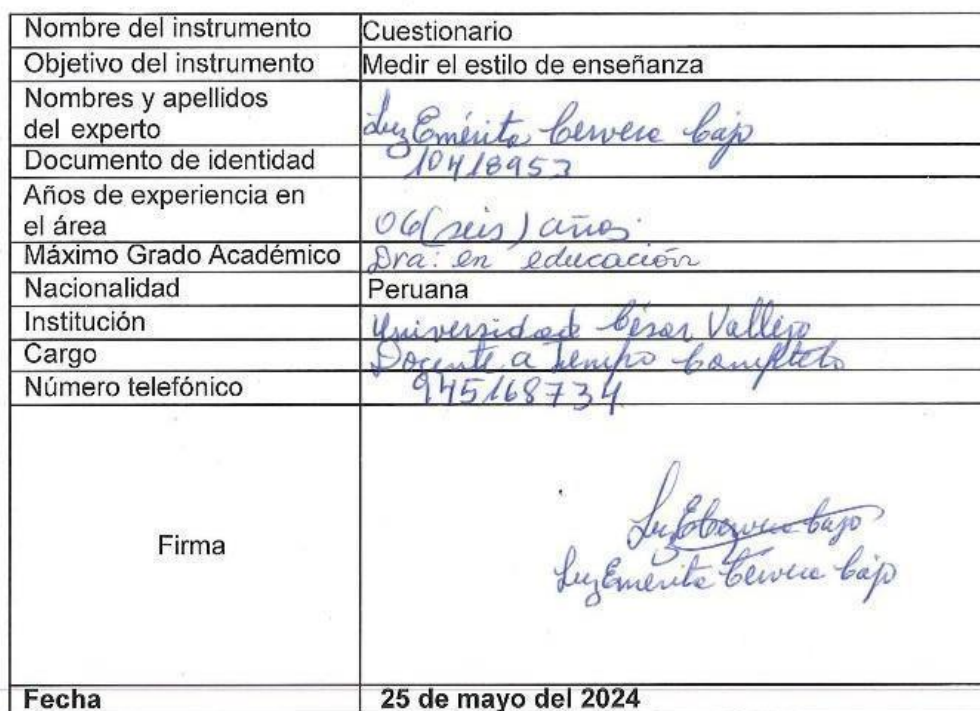 Nombre del instrumento Cuestionario
Objetivo del instrumento Medir el estilo de enseñanza
Nombres y apellidos
del experto Luz Emérita Cervera Cajo
Documento de identidad 10418953
Años de experiencia en
el área 06 (seis) años.
Máximo Grado Académico Dra: en educación
Nacionalidad Peruana
Institución Universidad César Vallejo
Cargo Docente a Tiempo Completo
Número telefónico 945168734
Firma
Luz E Cervera Cajo
Luz Emérita Cervera Cajo
Fecha 25 de mayo del 2024